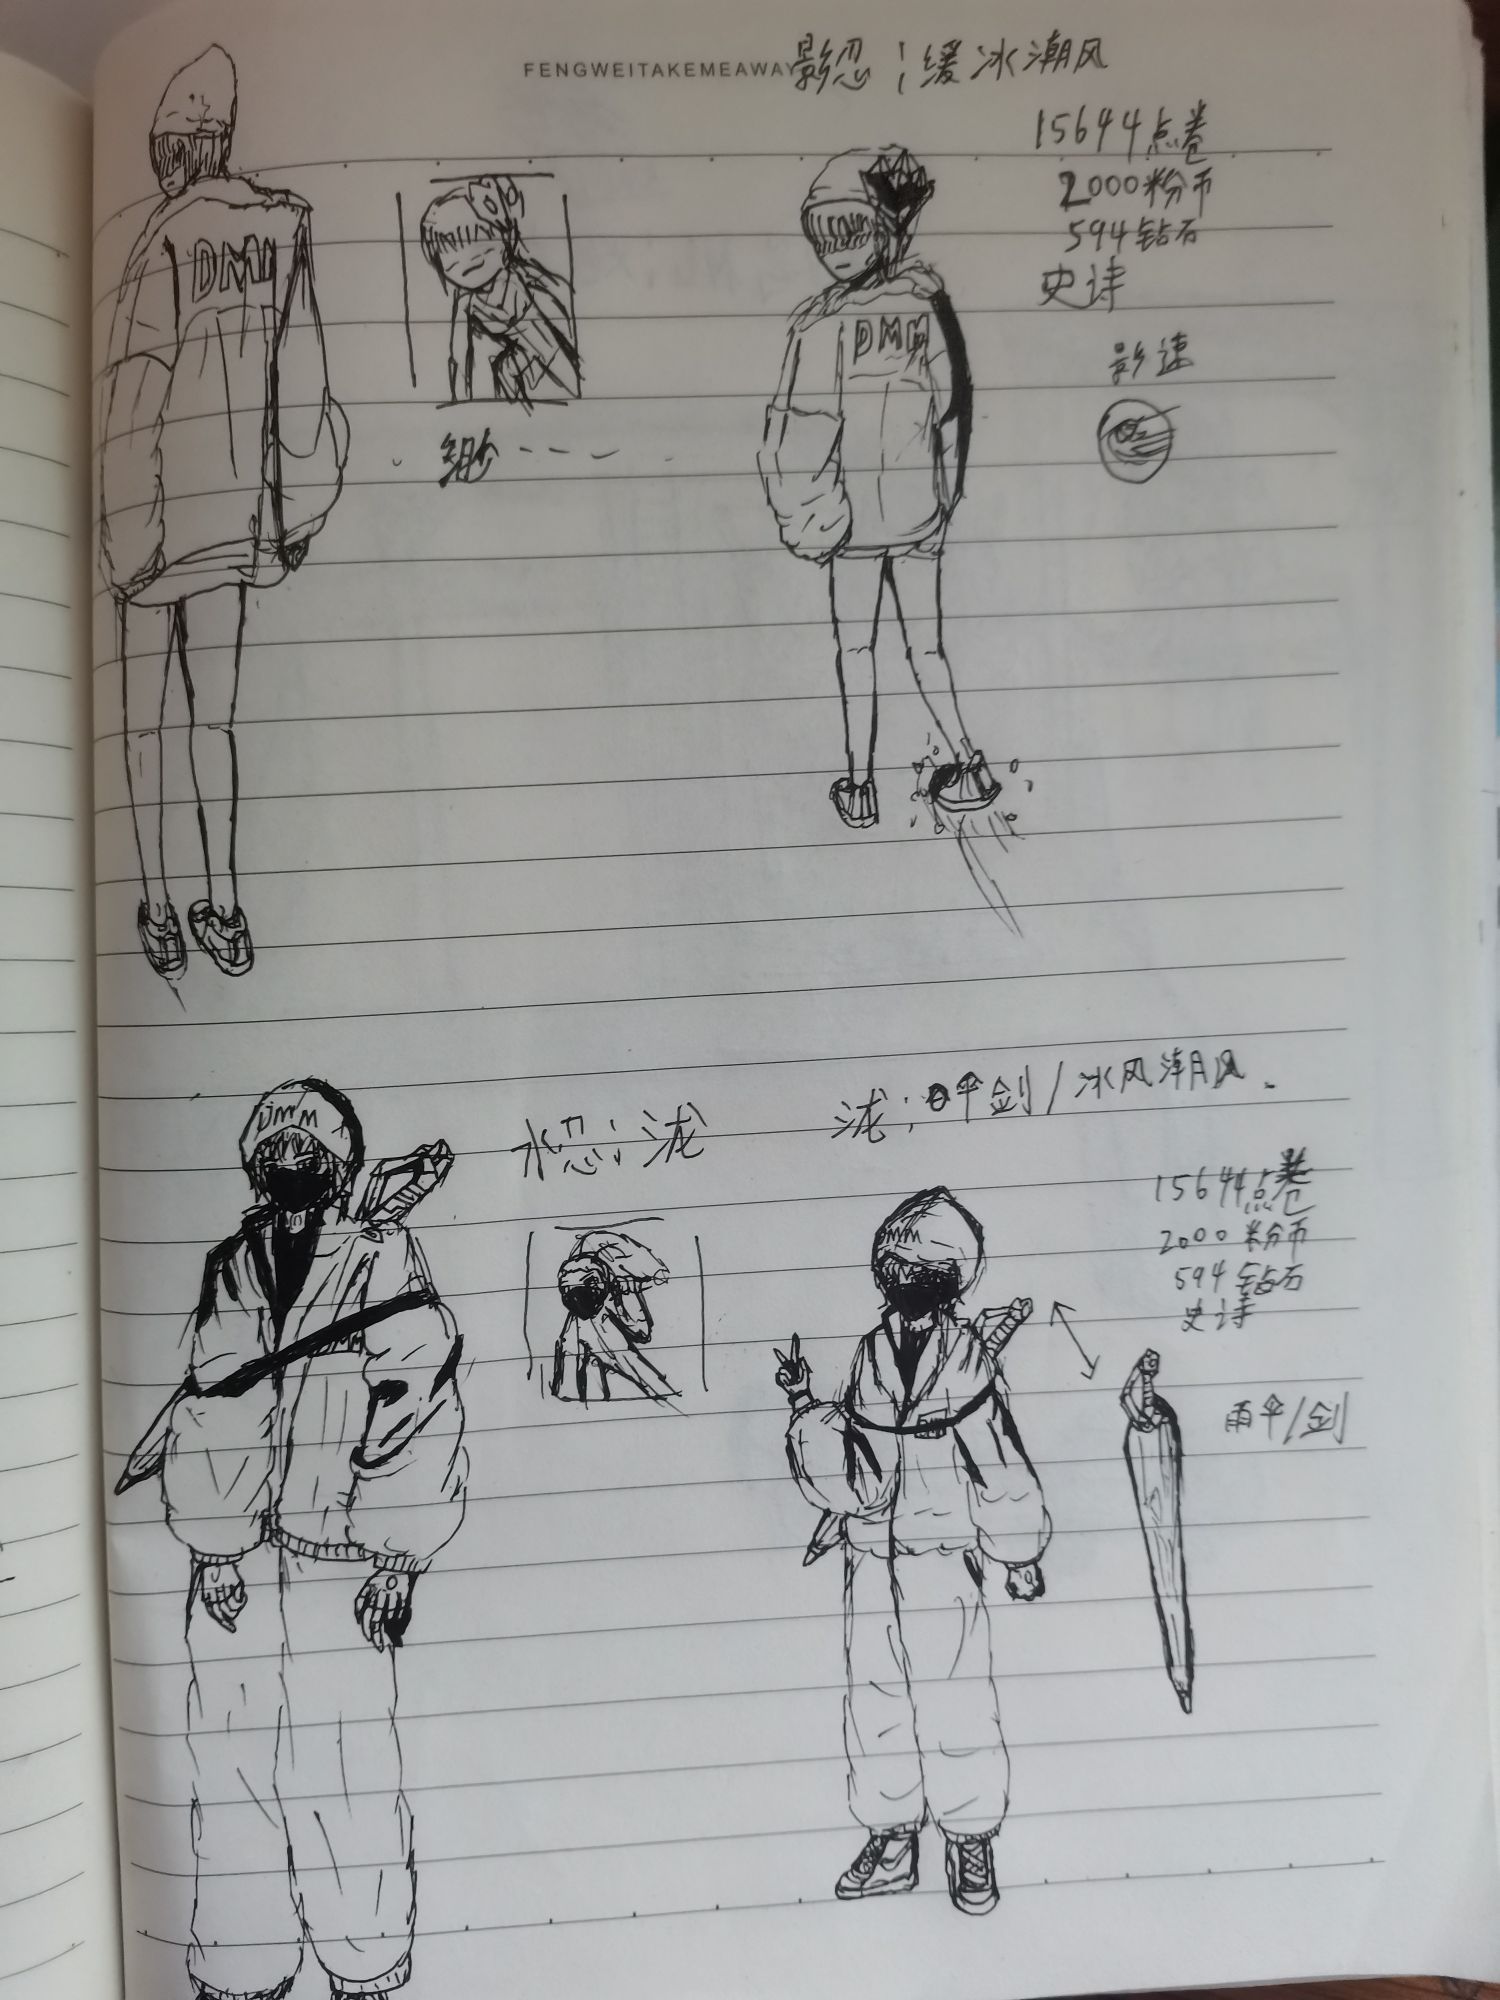 FENGWEITAKEMEAWAY
影忍；缓冰潮风
15644点卷
2000粉币
594钻石
史诗
影速
DMM
DMM
水忍；泷
泷；伞剑/冰风潮风.
15644点卷
2000粉币
594钻石
史诗
雨伞/剑
DMM
DMM
DMM